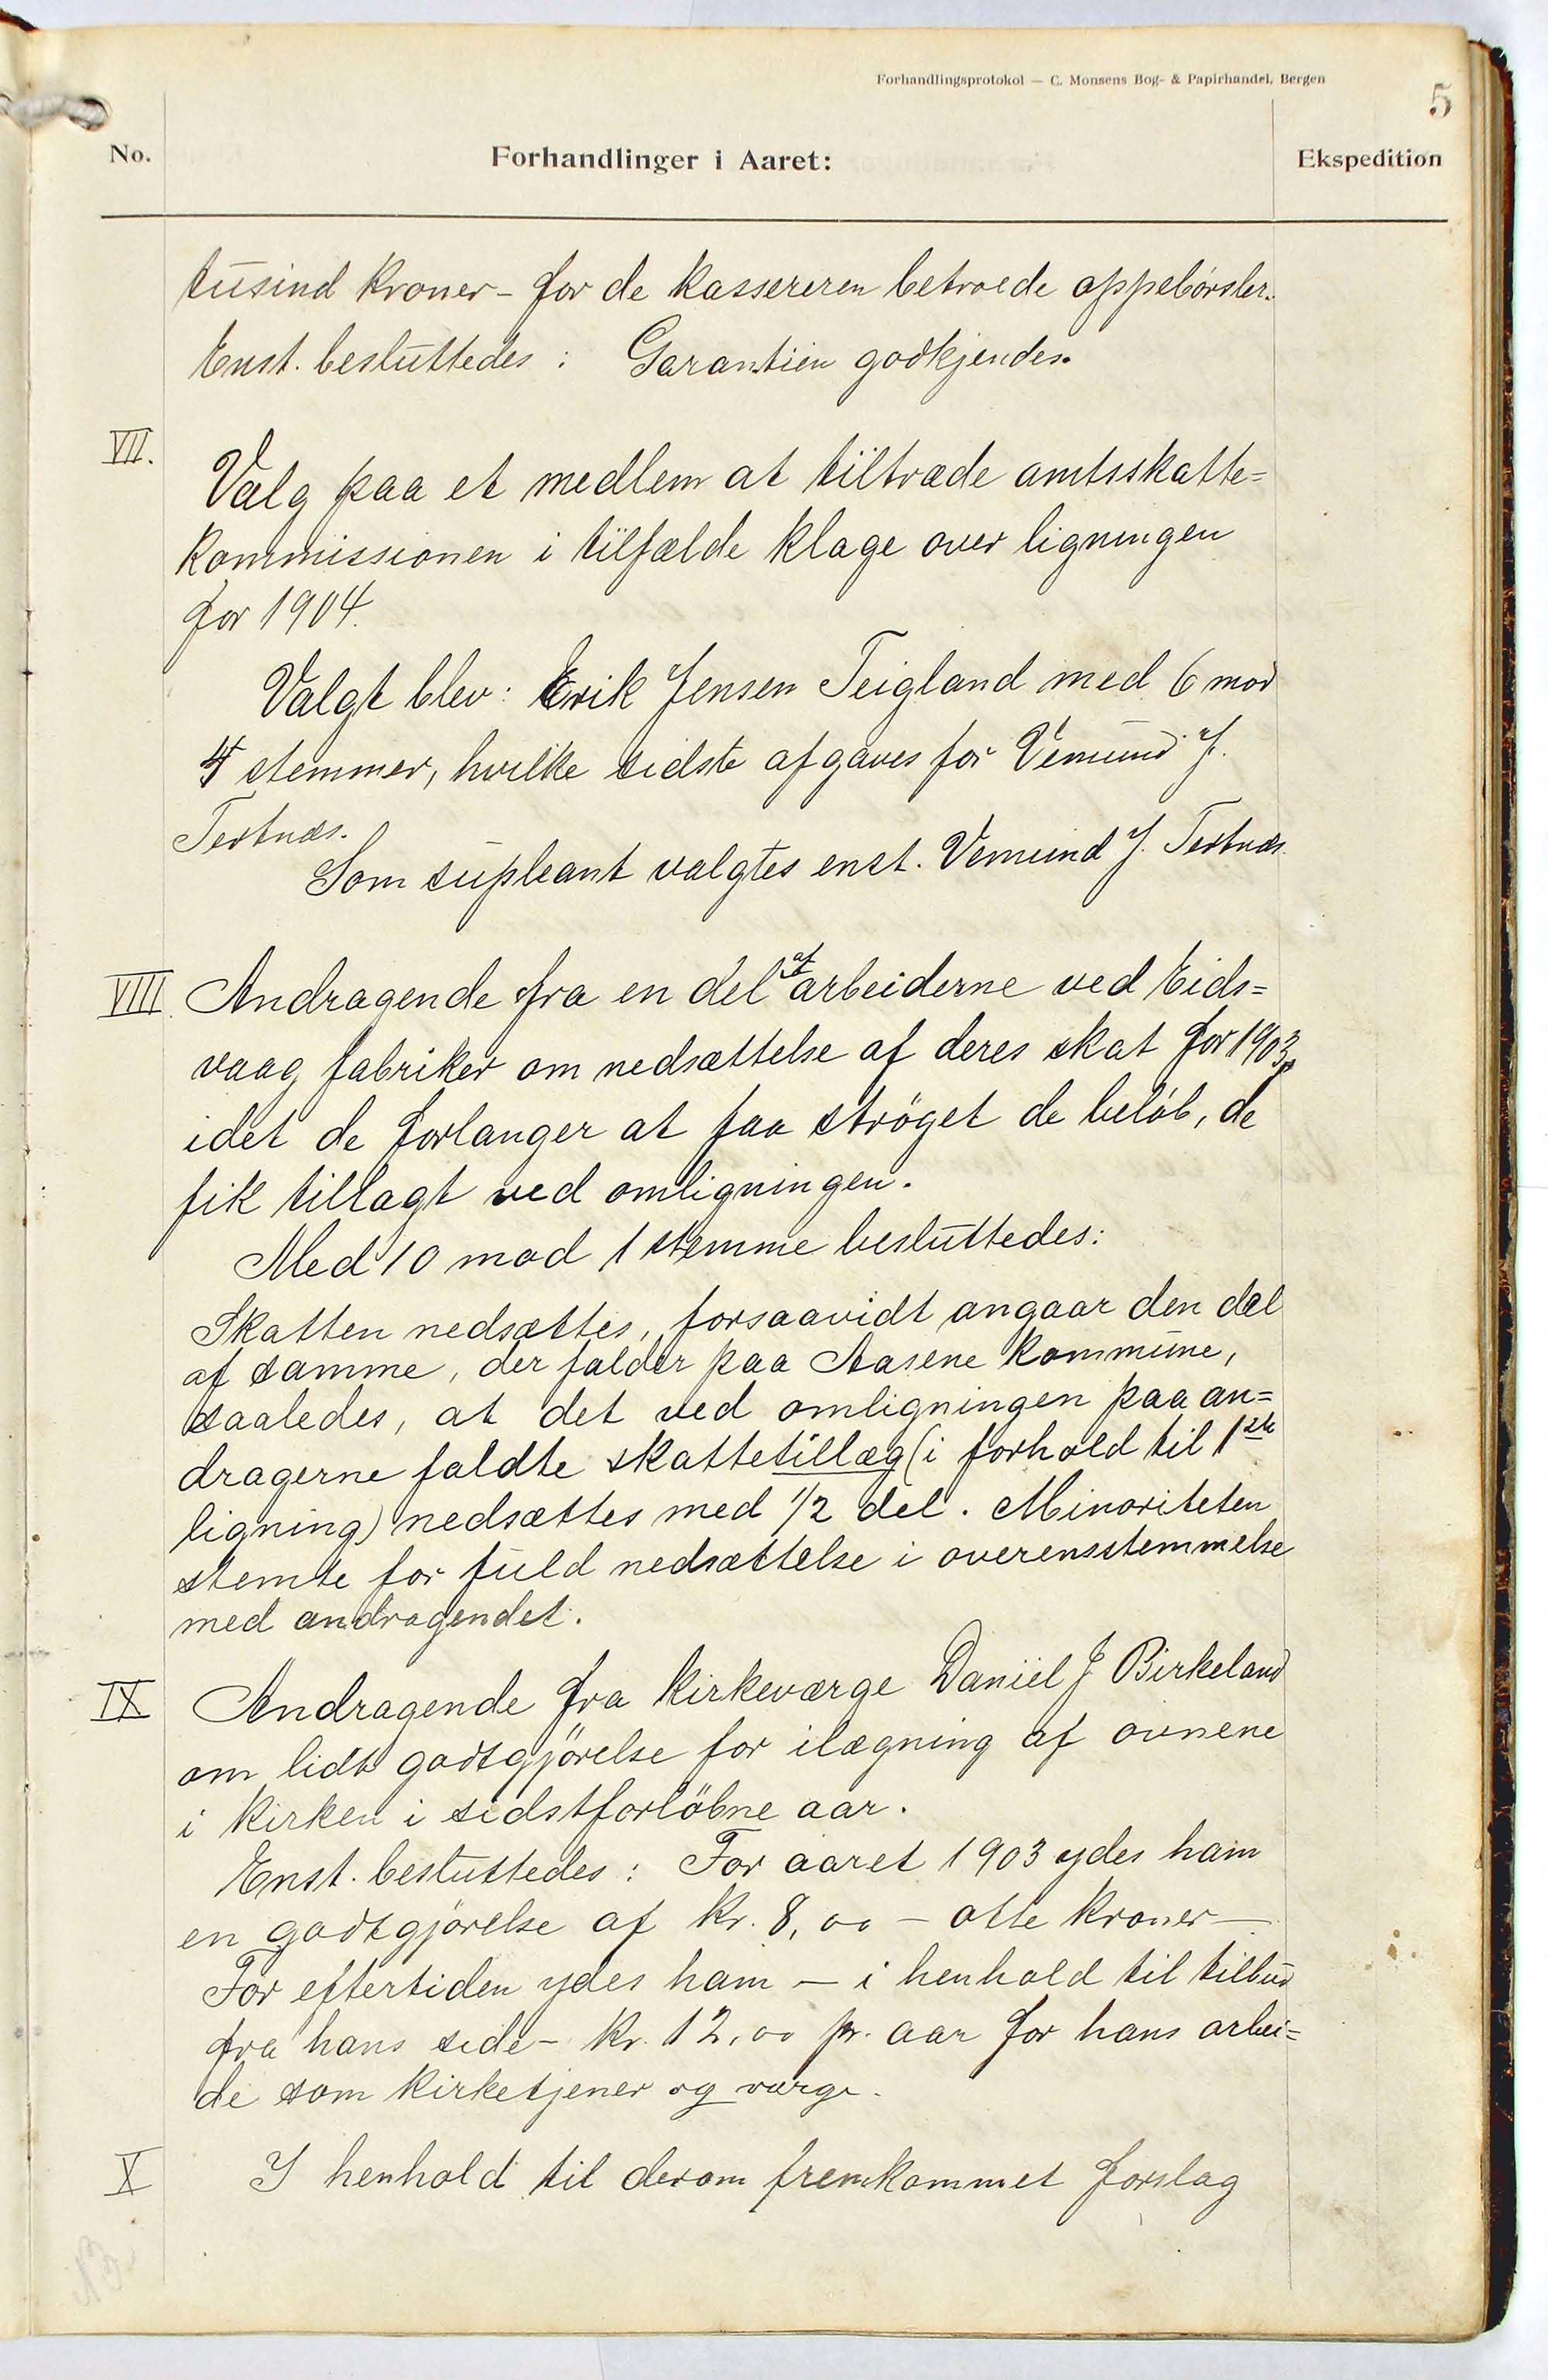 Forhandlingsprotokol — C. Monsens Bog- & Papirhandel, Bergen
5
No.
Forhandlinger i Aaret:
Ekspedition
tusind kroner - for de kassereren betroede oppebørsler.
Enst. besluttedes: Garantien godkjendes.
VII.
Valg paa et medlem at tiltræde amtsskatte=
kommissionen i tilfælde klage over ligningen
for 1904.
Valgt blev: Erik Jensen Teigland med 6 mod
4 stemmer, hvilke sidste afgaves for Vemund J.
Tertnæs.
Som supleant valgtes enst. Vemund J. Tertnæs.
VIII.
Andragende fra en del af arbeiderne ved Eids=
vaag fabriker om nedsættelse af deres skat for 1903,
idet de forlanger at faa strøget de beløb, de
fik tillagt ved omligningen.
Med 10 mod 1 stemme besluttedes:
Skatten nedsættes, forsaavidt angaar den del
af samme, der falder paa Aasene kommune,
saaledes, at det ved omligningen paa an=
dragerne faldte skattetillæg (i forhold til 1ste
ligning) nedsættes med 1/2 del. Minoriteten
stemte for fuld nedsættelse i overensstemmelse
med andragendet.
IX
Andragende fra kirkeværge Daniel J Birkeland
om lidt godtgjørelse for ilægning af ovnene
i kirken i sidstforløbne aar.
Enst. besluttedes: For aaret 1903 ydes ham
en godtgjørelse af kr. 8,00 - otte kroner -
For eftertiden ydes ham - i henhold til tilbud
fra hans side - kr. 12,00 pr. aar for hans arbei=
de som kirketjener og værge.
X
I henhold til derom fremkommet forslag